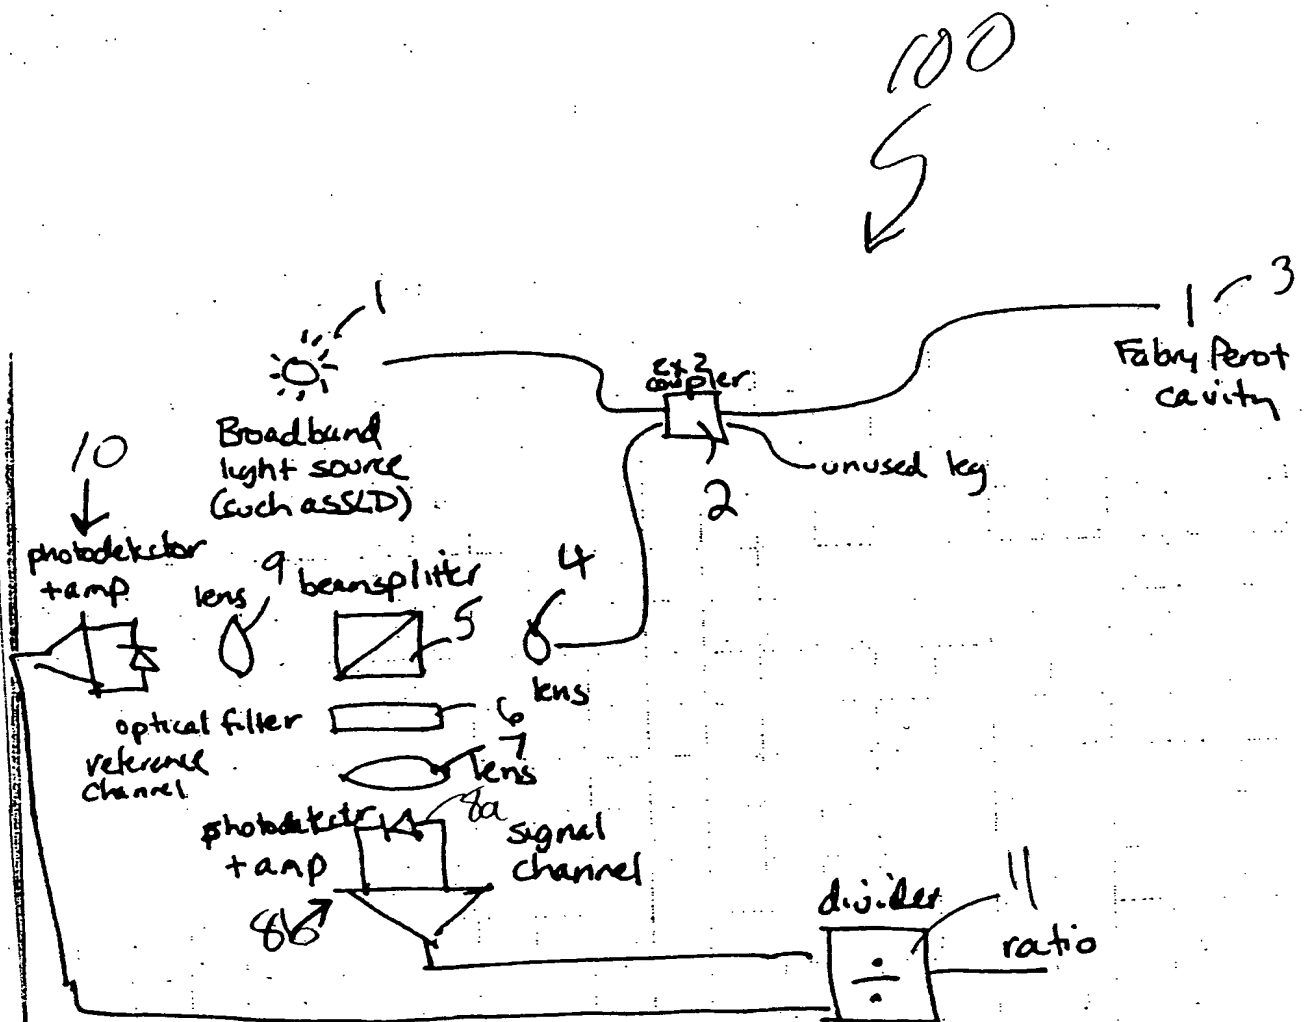 100
1
3
Fabry Perot
cavity
2x2
coupler
Broadband
light source
(such as SLD)
unused leg
2
10
photodetector
+ amp
lens
9
beamsplitter
5
4
lens
optical filter
6
reference
channel
7
lens
photodetector
+ amp
8a
signal
channel
8b
divider
11
÷
ratio